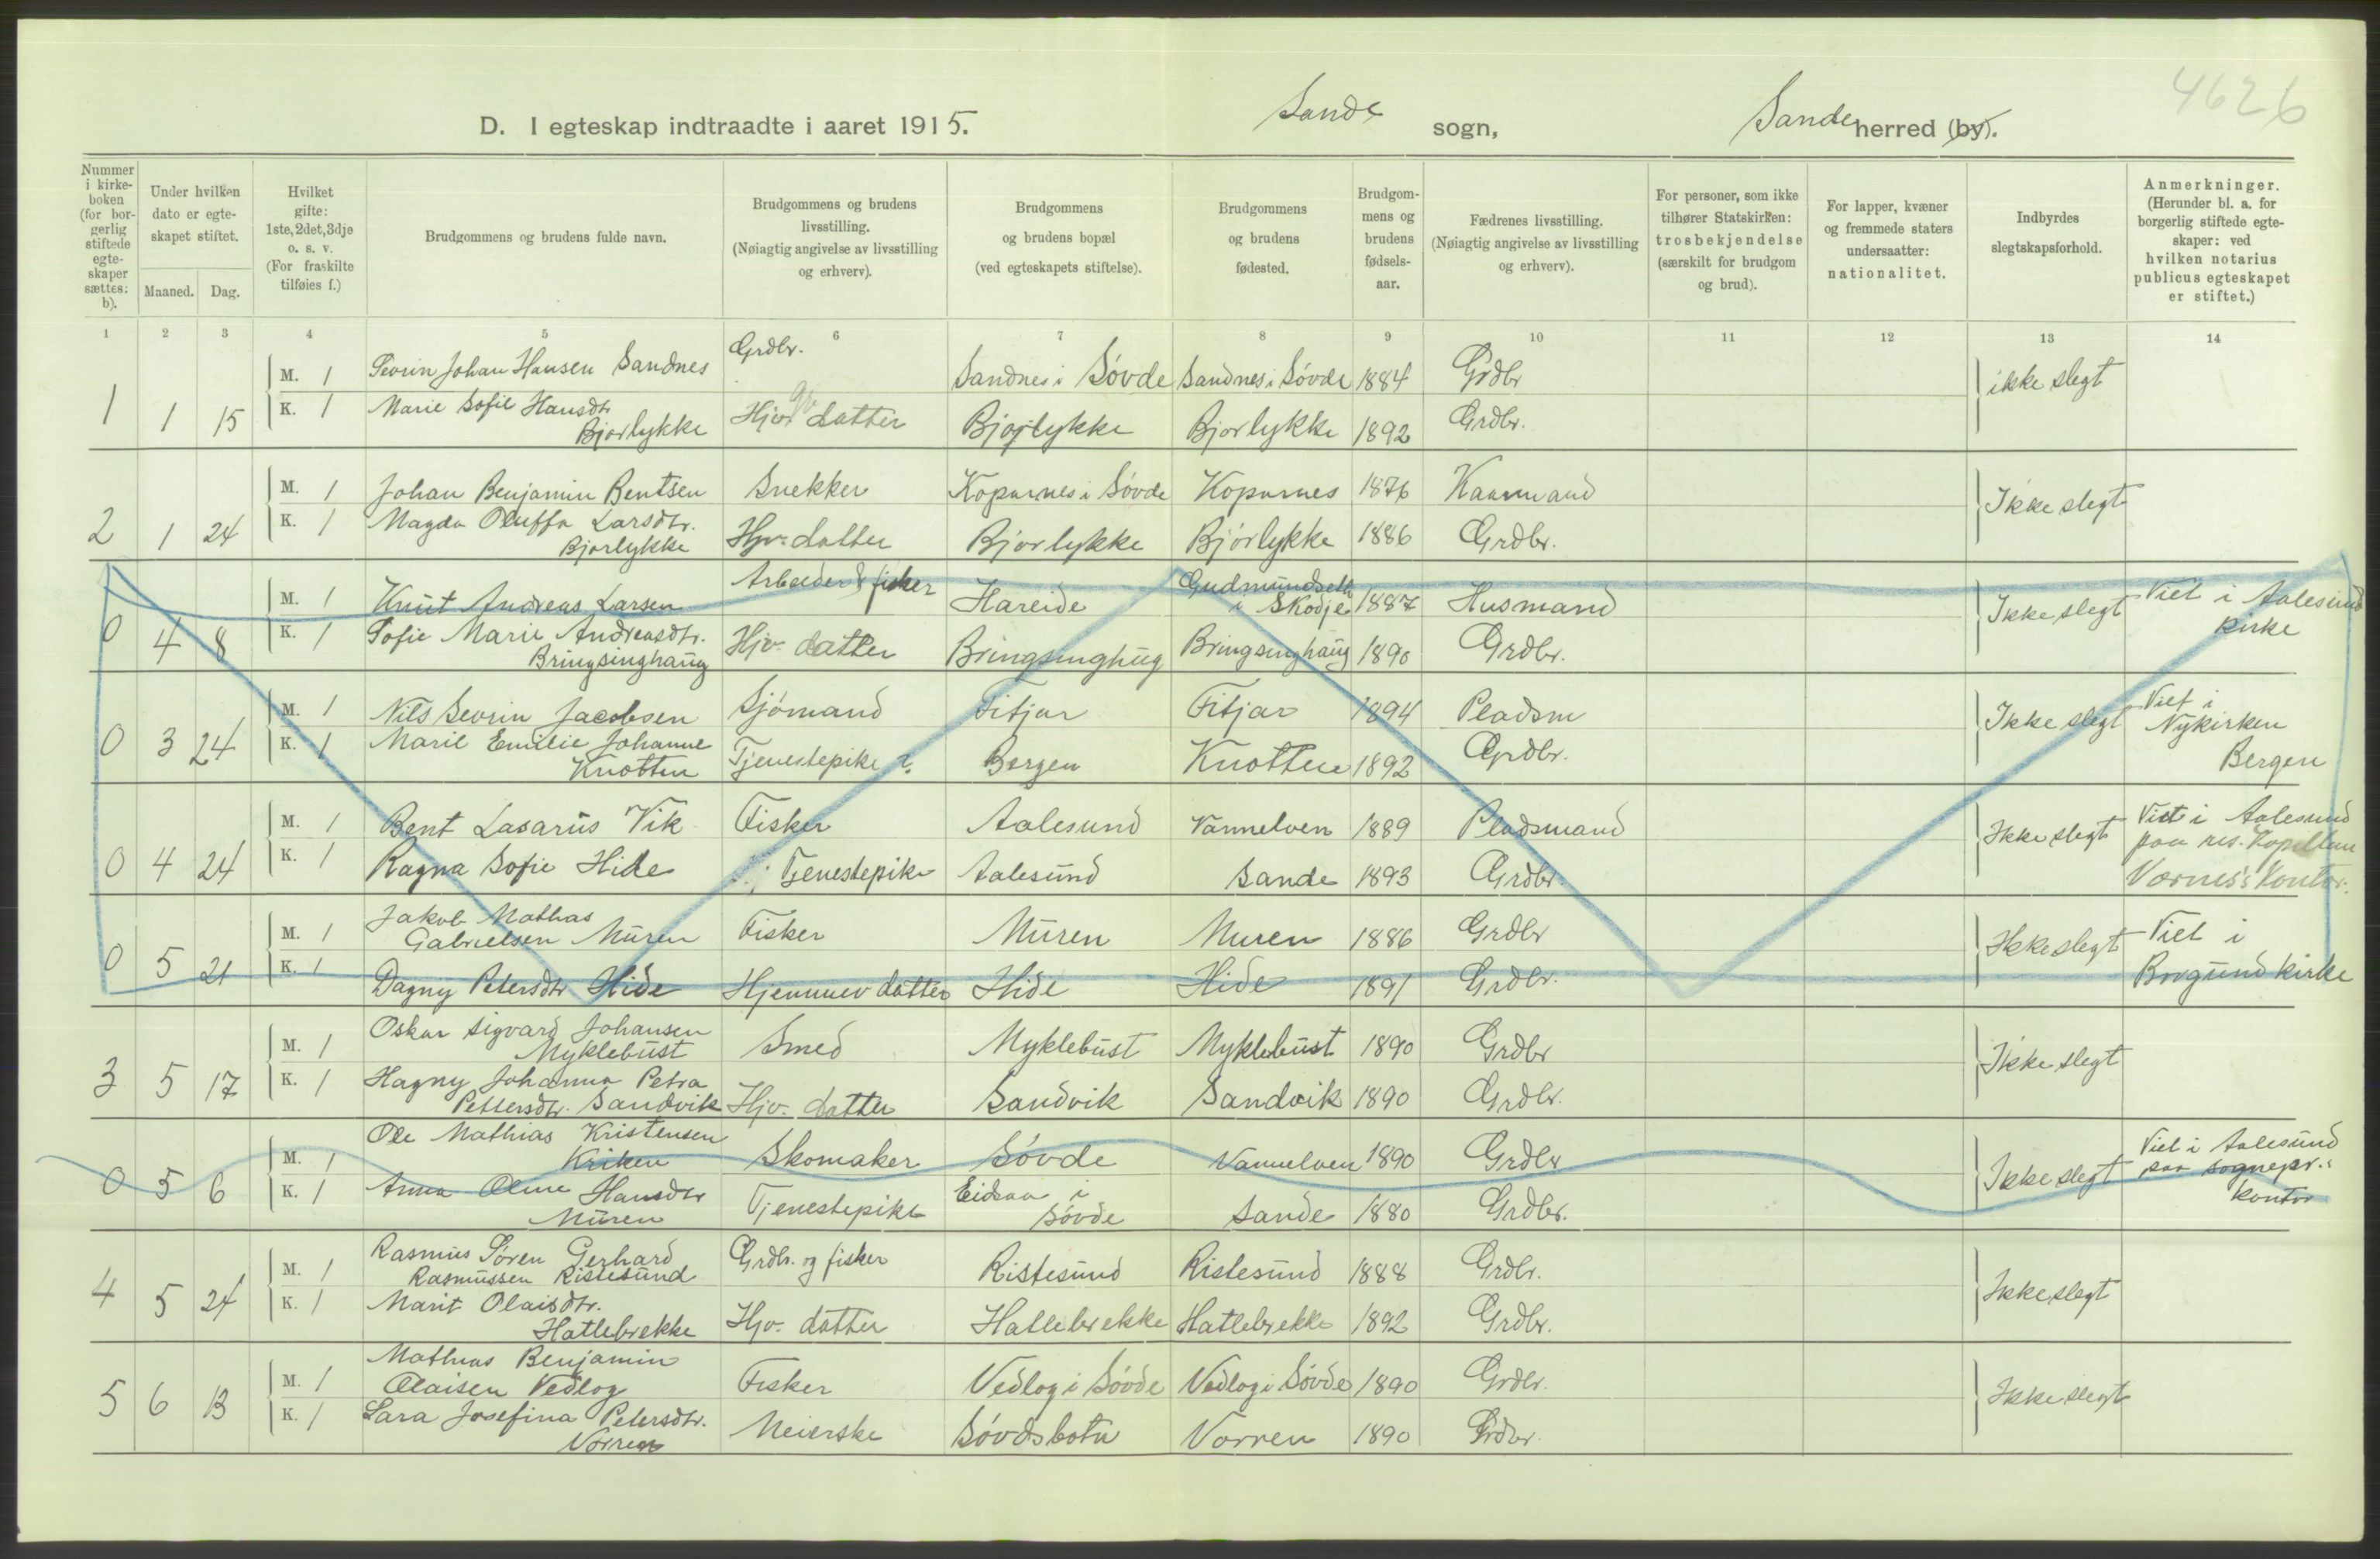 4626
D. I egteskap indtraadte i aaret 1915. Sande sogn, Sande herred (by).
Nummer i kirke-boken (for bor-gerlig stiftede egte-skaper sættes: b).
Under hvilken dato er egte-skapet stiftet.
Maaned. Dag.
Hvilket gifte: 1ste, 2det, 3dje o. s. v. (For fraskilte tilføies f.)
Brudgommens og brudens fulde navn.
Brudgommens og brudens livsstilling. (Nøiagtig angivelse av livsstilling og erhverv).
Brudgommens og brudens bopæl (ved egteskapets stiftelse).
Brudgommens og brudens fødested.
Brudgom-mens og brudens fødsels-aar.
Fædrenes livsstilling. (Nøiagtig angivelse av livsstilling og erhverv).
For personer, som ikke tilhører Statskirken: trosbekjendelse (særskilt for brudgom og brud).
For lapper, kvæner og fremmede staters undersaatter: nationalitet.
Indbyrdes slegtskapsforhold.
Anmerkninger. (Herunder bl. a. for borgerlig stiftede egte-skaper: ved hvilken notarius publicus egteskapet er stiftet.)
1 2 3 4 5 6 7 8 9 10 11 12 13 14
M. 1 Sevrin Johan Hansen Sandnes Grdbr. Sandnes i Søvde Sandnes i Søvde 1884 Grdbr ikke slegt
1 1 15 K. 1 Marie Sofie Hansdtr Bjørlykke Hjv. datter Bjørlykke Bjørlykke 1892 Grdbr.
M. 1 Johan Benjamin Bentsen Snekker Koparnes i Søvde Koparnes 1876 Kaarmand Ikke slegt
2 1 24 K. 1 Magda Oluffa Larsdtr. Bjørlykke Hjv. datter Bjørlykke Bjørlykke 1886 Grdbr.
M. 1 Knut Andreas Larsen Arbeider & fisker Hareide Gudmundseth i Skodje 1887 Husmand Ikke slegt Viet i Aalesund kirke
0 4 8 K. 1 Sofie Marie Andreasdtr. Bringsinghaug Hjv. datter Bringsinghaug Bringsinghaug 1890 Grdbr.
M. 1 Nils Sevrin Jacobsen Sjømand Fitjar Fitjar 1894 Pladsm Ikke slegt Viet i Nykirken Bergen
0 3 24 K. 1 Marie Emilie Johanne Knotten Tjenestepike ? Bergen Knotten 1892 Grdbr.
M. 1 Bent Lasarus Vik Fisker Aalesund Vannelven 1889 Pladsmand Ikke slegt Viet i Aalesund paa res. Kapellan Vornes's Kontor.
0 4 24 K. 1 Ragna Sofie Hide Tjenestepike Aalesund Sande 1893 Grdbr.
M. 1 Jakob Mathias Gabrielsen Muren Fisker Muren Muren 1886 Grdbr Ikke slegt Viet i Borgund kirke
0 5 21 K. 1 Dagny Petersdtr Hide Hjemmev datter Hide Hide 1891 Grdbr.
M. 1 Oskar Sigvard Johansen Myklebust Smed Myklebust Myklebust 1890 Grdbr Ikke slegt
3 5 17 K. 1 Hagny Johanna Petra Pettersdtr. Sandvik Hjv. datter Sandvik Sandvik 1890 Grdbr.
M. 1 Ole Mathias Kristensen Kriken Skomaker Søvde Vannelven 1890 Grdbr Ikke slegt Viet i Aalesund paa sognepr.s kontor
0 5 6 K. 1 Anna Oline Hansdtr Muren Tjenestepike Eidsaa i Søvde Sande 1880 Grdbr.
M. 1 Rasmus Søren Gerhard Rasmussen Ristesund Grdbr. og fisker Ristesund Ristesund 1888 Grdbr. Ikke slegt
4 5 24 K. 1 Marit Olaisdtr. Hatlebrekke Hjv. datter Hatlebrekke Hatlebrekke 1892 Grdbr.
M. 1 Mathias Benjamin Olaisen Vedlog Fisker Vedlog i Søvde Vedlog i Søvde 1890 Grdbr. Ikke slegt
5 6 13 K. 1 Lara Josefina Petersdtr. Vorren Meierske Søvdsbotn Vorren 1890 Grdbr.